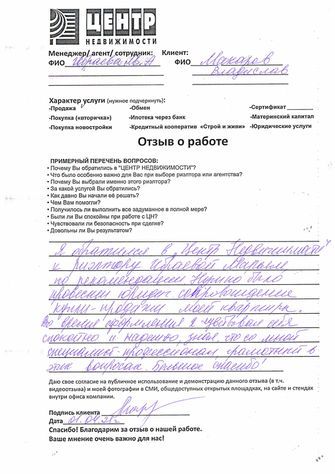 ЦЕНТР
НЕДВИЖИМОСТИ
Менеджер/ агент/ сотрудник: Клиент:
ФИО ФИО Макаров
Владислав
Характер услуги (нужное подчеркнуть):
-Продажа -Обмен -Сертификат
-Покупка (вторичка) -Ипотека через банк -Материнский капитал
-Покупка новостройки -Кредитный кооператив «Строй и живи» -Юридические услуги
Отзыв о работе
ПРИМЕРНЫЙ ПЕРЕЧЕНЬ ВОПРОСОВ:
• Почему Вы обратились в "ЦЕНТР НЕДВИЖИМОСТИ"?
• Что было особенно важно для Вас при выборе риелтора или агентства?
• Почему Вы выбрали именно этого риелтора?
• За какой услугой Вы обратились?
• Как давно Вы начали её решать?
• Чем Вам помогли?
• Получилось ли выполнить все задуманное в полной мере?
• Были ли Вы спокойны при работе с ЦН?
• Чувствовали ли безопасность при сделке?
• Довольны ли Вы результатом?
Я обратился в "Центр Недвижимости"
к риэлтору
по рекомендации. Нужно было
провести юридич. сопровождение
купли-продажи моей квартиры.
Во время оформления я чувствовал себя
спокойно и надежно, зная что со мной
специалист профессионал грамотный в
этих вопросах. Большое спасибо!
Даю свое согласие на публичное использование и демонстрацию данного отзыва (в т.ч.
видеоотзыва) и моей фотографии в СМИ, общедоступных открытых площадках, на сайте и стендах
внутри офиса компании.
Подпись клиента
Дата 01.04.21г.
Спасибо! Благодарим за отзыв о нашей работе.
Ваше мнение очень важно для нас!